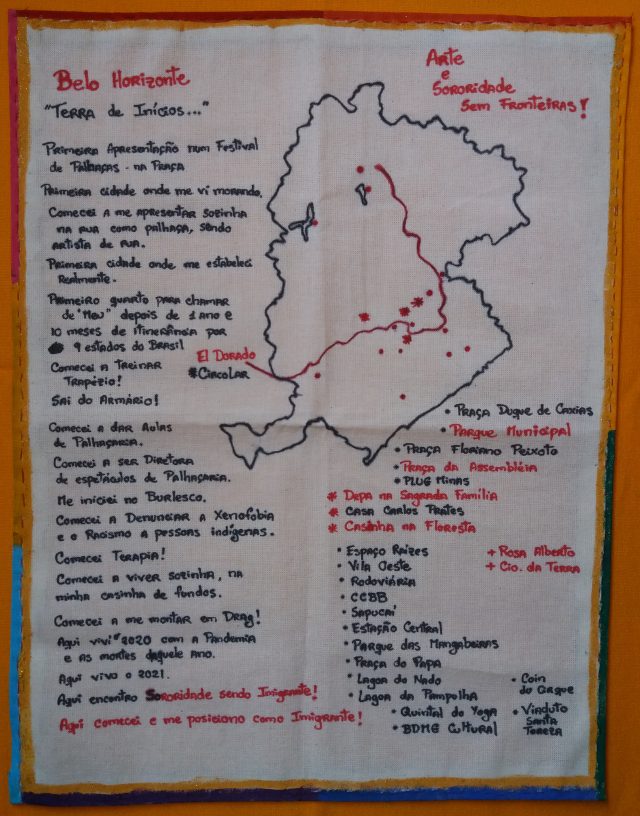 Belo Horizonte
"Terra de Inícios..."
Primeira Apresentação num Festival
de Palhaças - na Praça
Primeira cidade onde me vi morando.
Comecei a me apresentar sozinha
na rua como palhaça, sendo
artista de rua.
Primeira cidade onde me estabeleci
Realmente.
Primeiro quarto para chamar
de "Meu" depois de 1 ano e
10 meses de itinerância por
9 estados do Brasil
Comecei a treinar
Trapézio!
Saí do Armário!
Comecei a dar Aulas
de Palhaçaria.
Comecei a ser Diretora
de espetáculos de Palhaçaria.
Me iniciei no Burlesco.
Comecei a Denunciar a Xenofobia
e o Racismo a pessoas indígenas.
Comecei Terapia!
Comecei a viver sozinha, na
minha casinha de fundos.
Comecei a me montar em Drag!
Aqui vivi 2020 com a Pandemia
e as mortes daquele ano.
Aqui vivo o 2021.
Aqui encontro Sororidade sendo Imigrante!
Aqui comecei e me posiciono como Imigrante!
Arte
e
Sororidade
Sem Fronteiras!
El Dorado
*Circolar
• Praça Duque de Caxias
• Parque Municipal
• Praça Floriano Peixoto
• Praça da Assembléia
• Plug Minas
* Depa na Sagrada Família
* Casa Carlos Prates
* Casinha na Floresta
• Espaço Raízes
• Vila Oeste
• Rodoviária
• CCBB
• Sapucaí
• Estação Central
• Parque das Mangabeiras
• Praça do Papa
• Lagoa do Nado
• Lagoa da Pampolha
• Quintal do Yoga
• BDMG Cultural
+ Rosa Alberto
+ Cio. da Terra
• Viaduto
Santa
Tereza